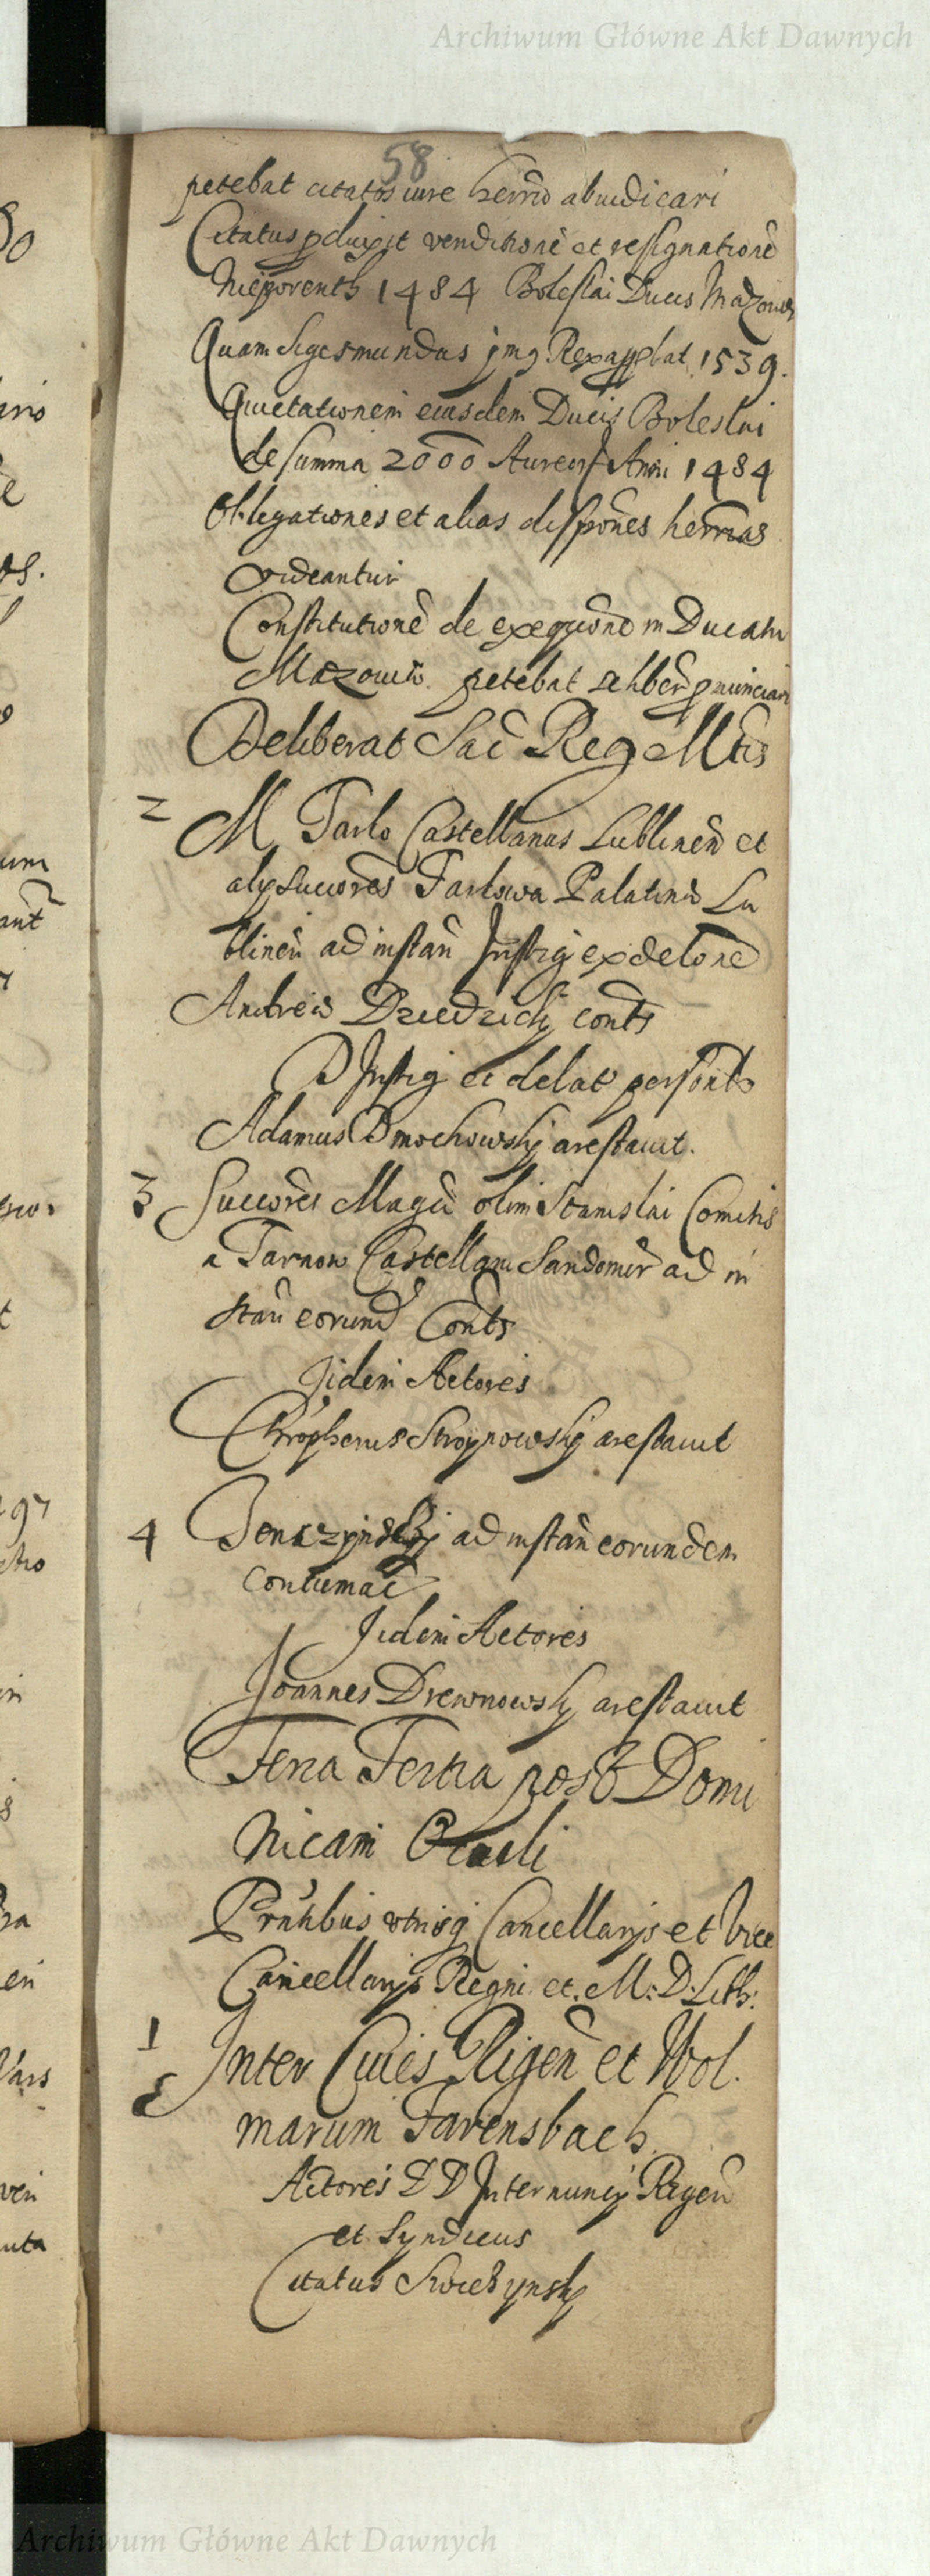 Archiwum Główne Akt Dawnych
58
petebat citatos iure herrio abiudicari
Citatus pduxit venditionē et resignationē
Nieporenth 1484 Boleslai Ducis Mazoviæ
Quam Sigesmundus Rex 1539.
Quietationem eiusdem Ducis Boleslai
de summa 2000 Aureor Anni 1484
Obligationes et alias dispones herrias
videantur
Constitutionē de exeqūone in Ducatu
Mazouiæ petebat se liberū pnunciari
Deliberat Sac Reg Mtis
2 M Tarlo Castellanus Lublinen et
alij Succores Tarlowa Palatinæ Lu
blinen ad instan Instig ex delone
Andreæ Dziedzicki conts
P Instig et delat personts
Adamus Dmochowskj arestauit.
3 Succores Magci olim Stanislai Comitis
a Tarnow Castellani Sandomir ad in
stan eorund Conts
Jidem Actores
Chrophorus Stroynowskj arestauit
4 Tenczynskj ad instan eorundem
contumac
Jidem Actores
Joannes Drewnowskj arestauit
Feria Tertia post Domi
nicam Oculi
Prntibus vtrisq Cancellarijs et Vice
Cancellarijs Regni et. M: D: Lith:
1 Inter Ciues Rigen et Wol.
marum Farensbach
Actores D D Internuncij Rigen
et Syndicus
Citatus
Archiwum Główne Akt Dawnych